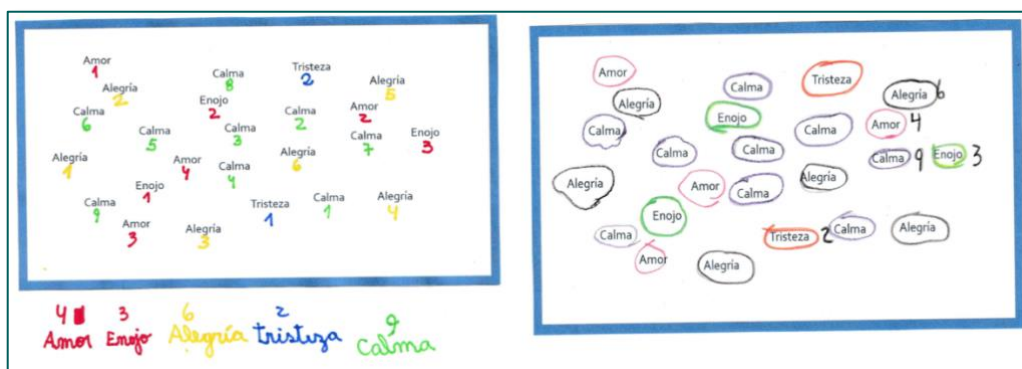 Amor
1
Alegría
2
Calma
8
Tristeza
2
Alegría
5
Calma
6
Enojo
2
Calma
2
Amor
2
Calma
5
Calma
3
Calma
7
Enojo
3
Alegría
1
Amor
4
Calma
4
Alegría
6
Enojo
1
Calma
9
Tristeza
1
Calma
1
Alegría
4
Amor
3
Alegría
3
4 3 6 2 9
Amor Enojo Alegría tristeza Calma
Amor
Calma
Tristeza
Alegría 6
Alegría
Enojo
Calma
Amor 4
Calma
Calma
Calma
Calma 9 Enojo 3
Alegría
Amor
Calma
Alegría
Enojo
Calma
Tristeza 2 Calma
Alegría
Amor
Alegría